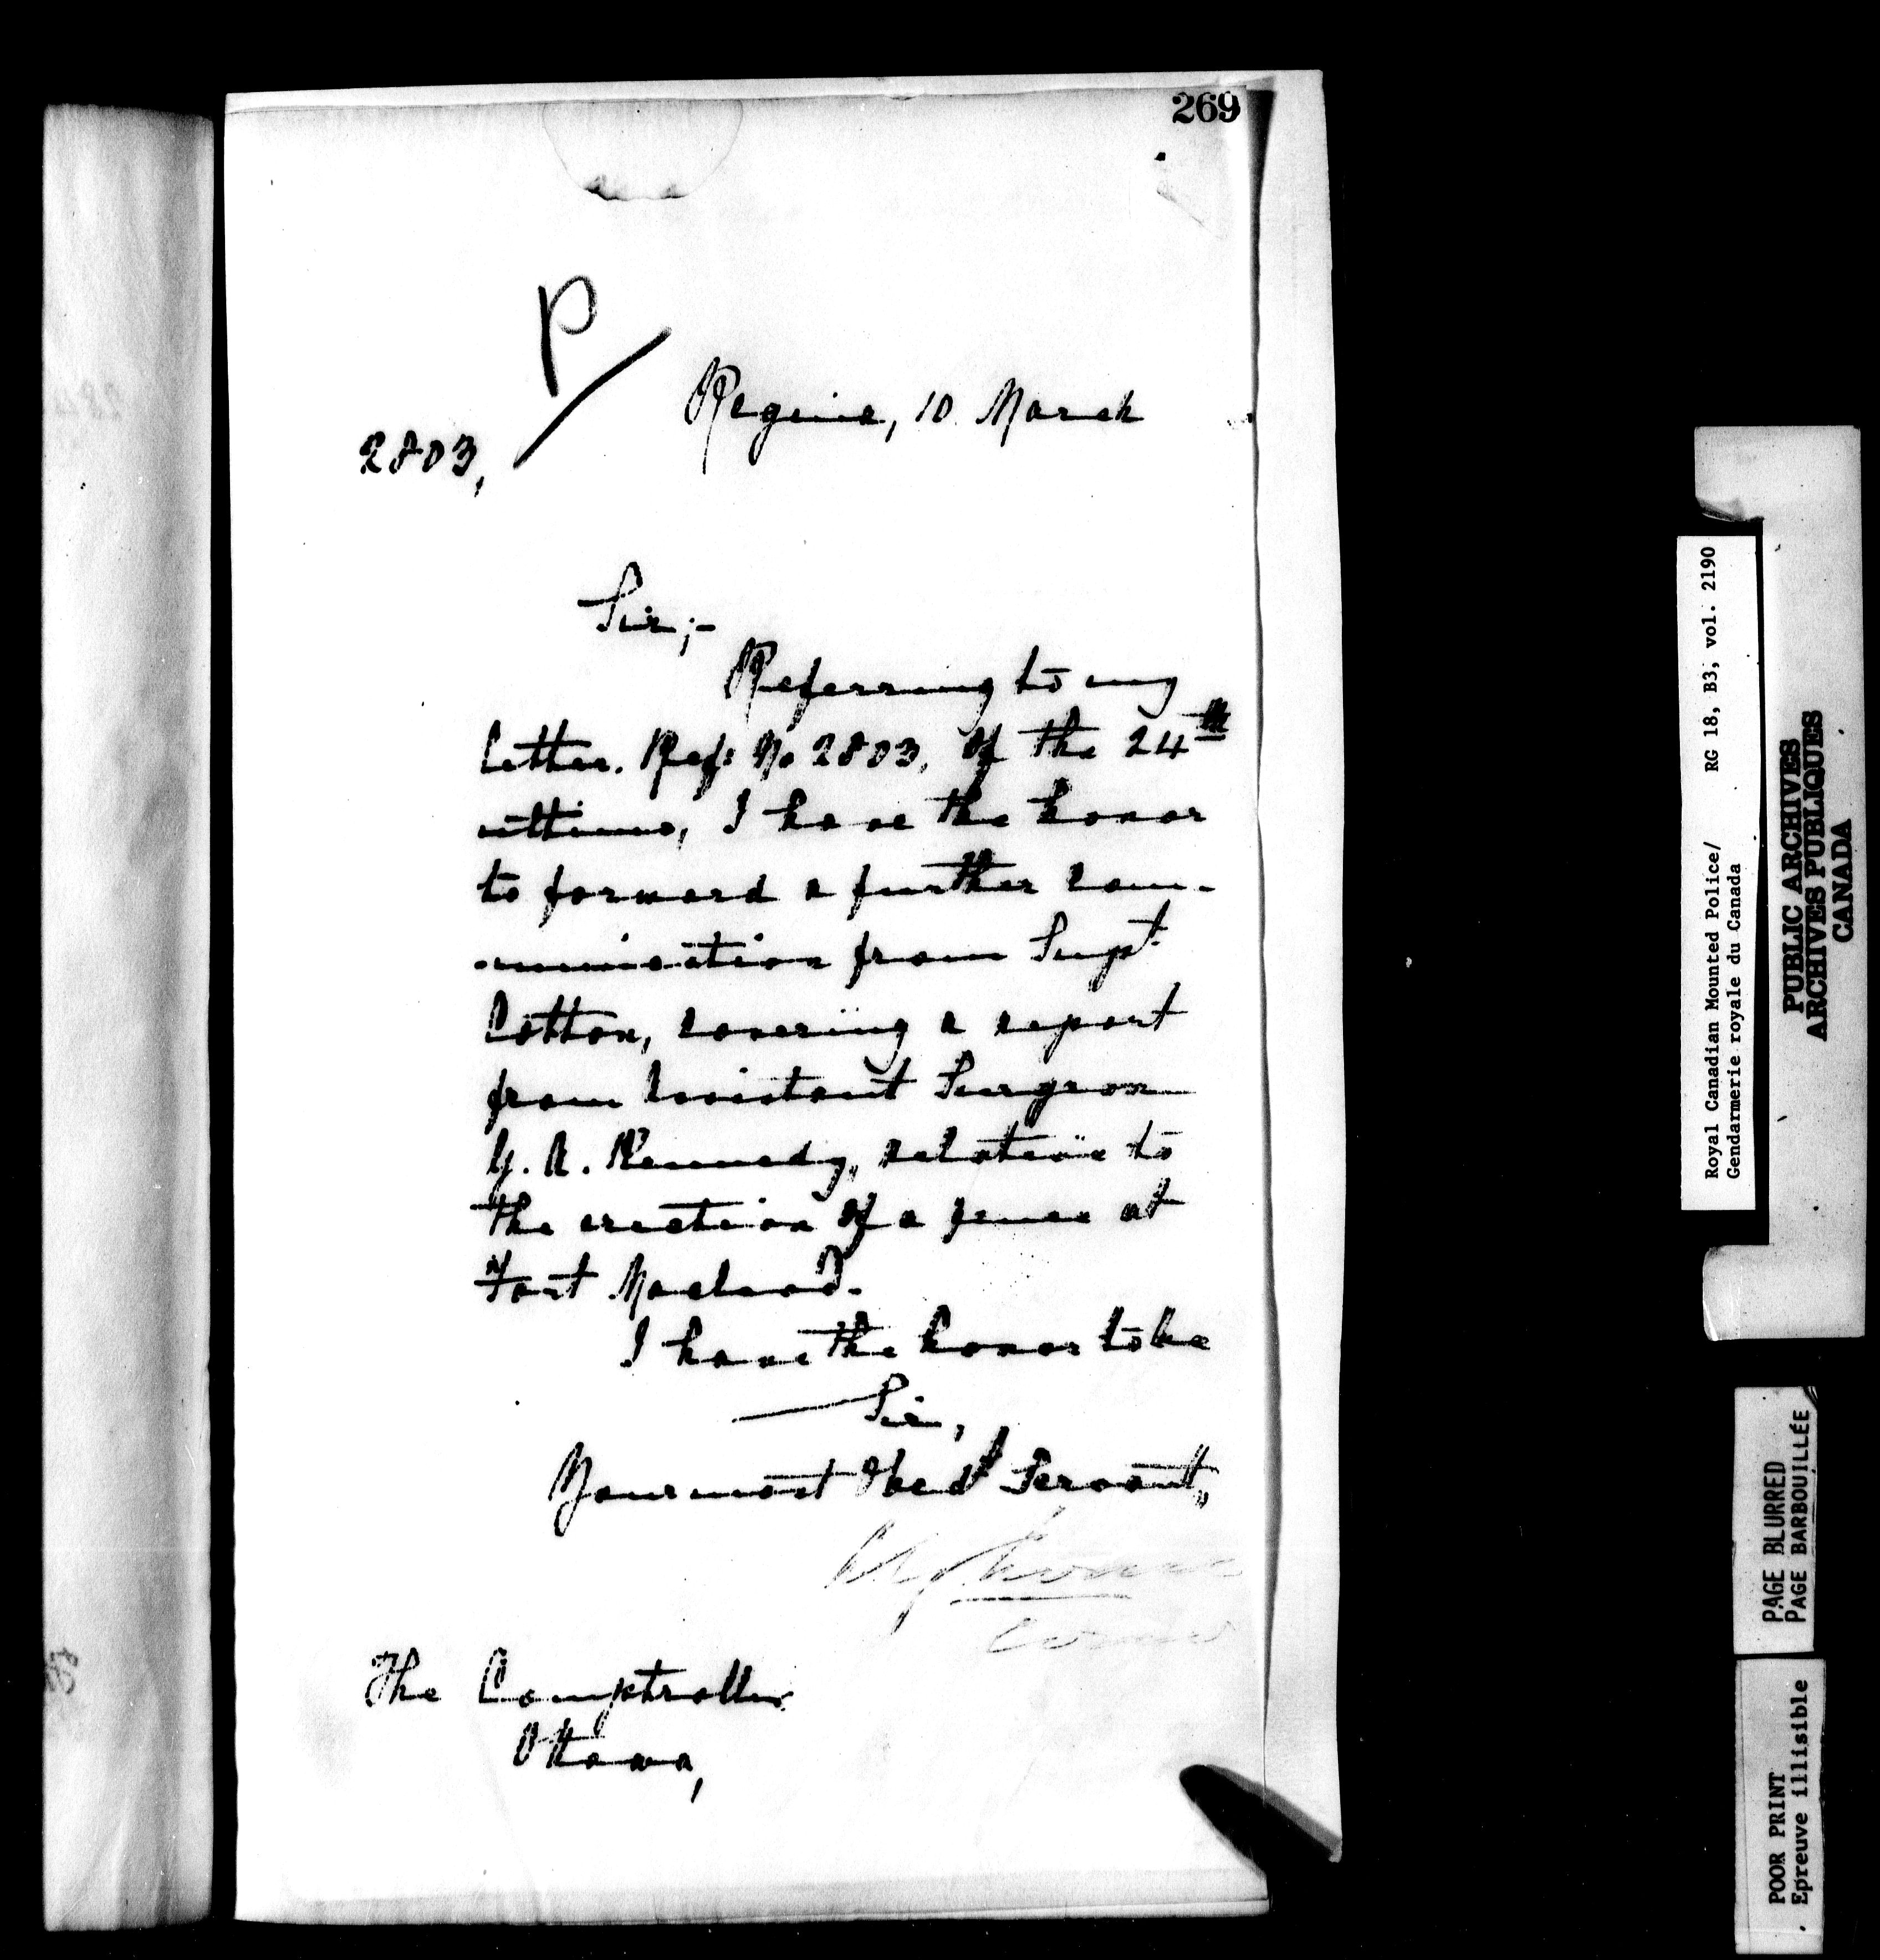 269
P
Regina, 10 March
2803,
Sir;-
Referring to my
letter. Ref: No 2803, of the 24th
ultimo, I have the honor
to forward a further com-
-munication from Supt
Cotton, covering a report
from Assistant Surgeon
G. A. Kennedy, relative to
the erection of a fence at
Fort Macleod.
I have the honor to be
Sir,
Your most Obedt Servant,
The Comptroller
Ottawa,
Royal Canadian Mounted Police/ RG 18, B3, vol. 2190
Gendarmerie royale du Canada
PUBLIC ARCHIVES
ARCHIVES PUBLIQUES
CANADA
PAGE BLURRED
PAGE BARBOUILLÉE
POOR PRINT
Epreuve illisible